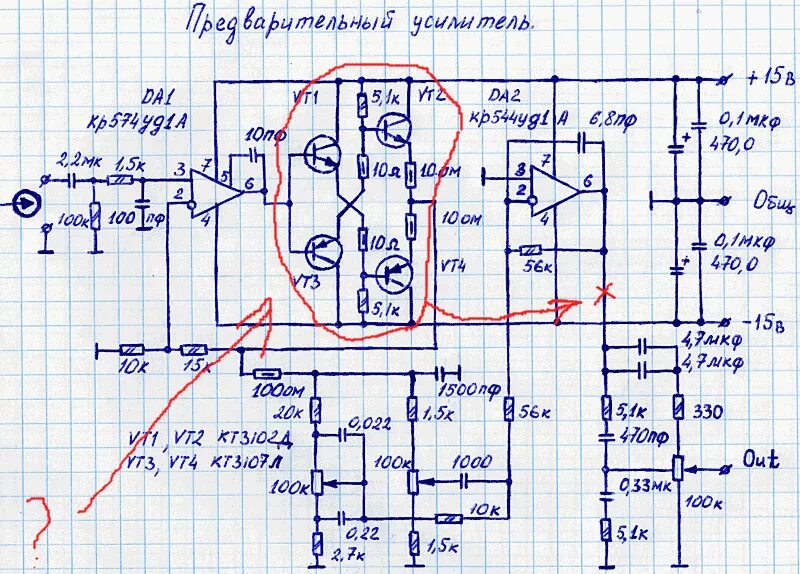 Предварительный усилитель.
DA1
кр574уд1А
VT1
5,1к
VT2
DA2
кр544уд1А
6,8пф
+15в
10пф
0,1мкф
470,0
2,2мк
1,5к
3
7
5
6
2
4
10Ω
10ом
3
7
6
2
4
Общ
100к
100
пф
10ом
10Ω
VT3
VT4
5,1к
56к
0,1мкф
470,0
-15в
10к
15к
100ом
1500пф
4,7мкф
4,7мкф
20к
0,022
1,5к
56к
5,1к
330
VT1, VT2 КТ3102Д
VT3, VT4 КТ3107Л
470пф
100к
100к
1000
Out
0,33мк
100к
10к
0,22
2,7к
1,5к
5,1к
?